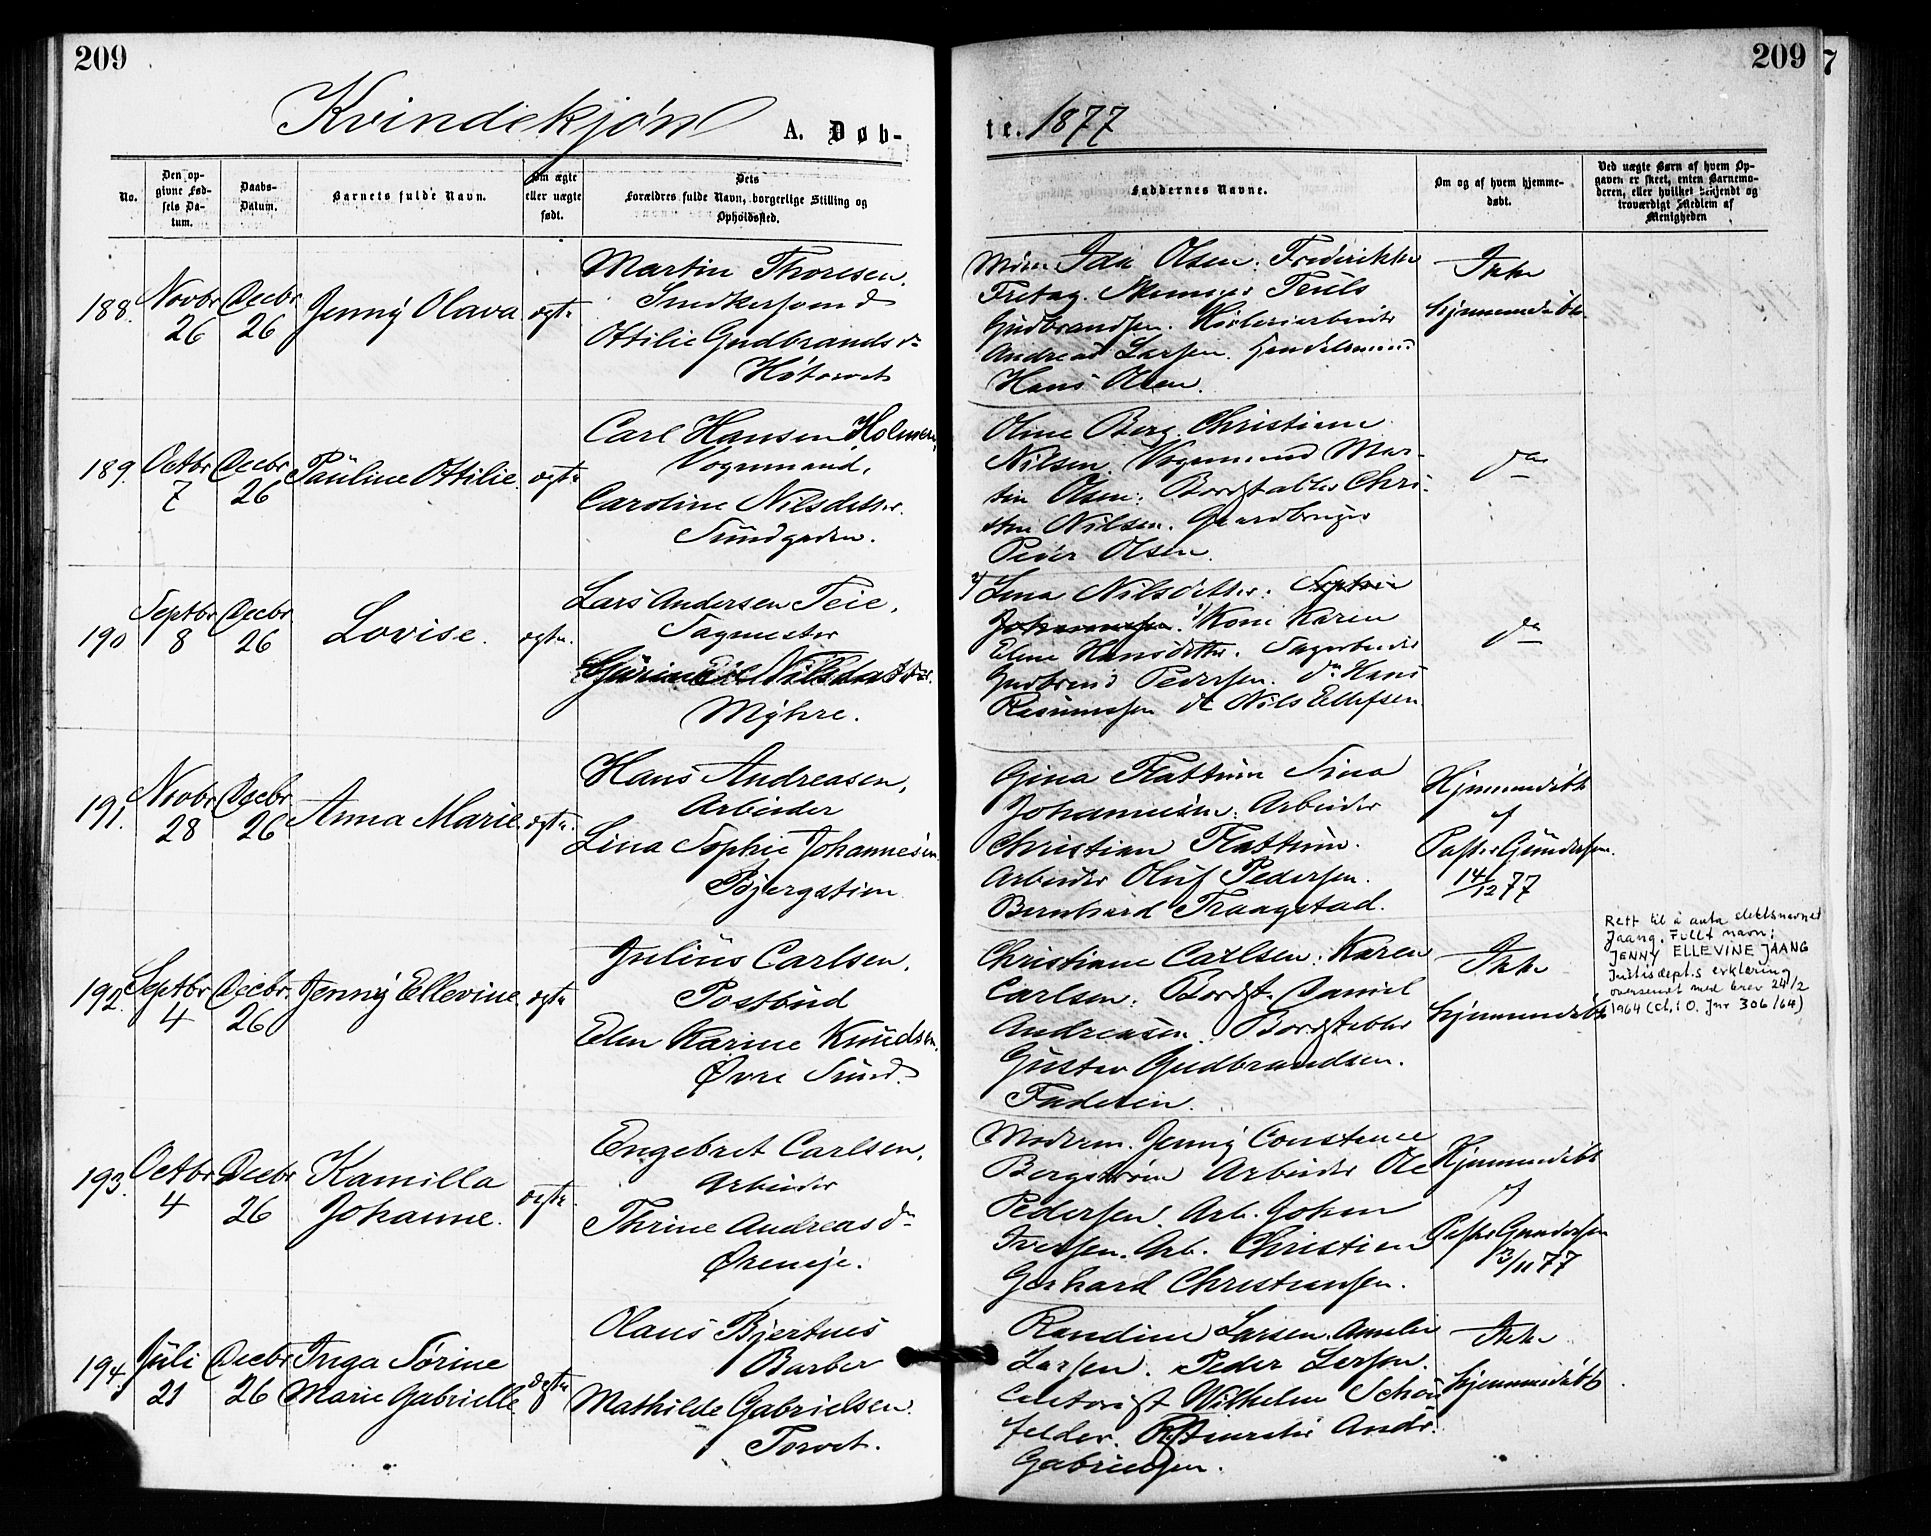 209
209
7
Kvindekjøn A. Døb-
te. 1877
No.
Den op-
givne Fød-
sels Da-
tum.
Daabs-
Datum.
Barnets fulde Navn.
Om ægte
eller uægte
født.
Dets
Forældres fulde Navn, borgerlige Stilling og
Opholdssted.
Faddernes Navne.
Om og af hvem hjemme-
døbt.
Ved uægte Børn af hvem Op-
gaven er skeet, enten Barnemo-
deren, eller hvilket bekjendt og
troværdigt Medlem af
Menigheden
188. Novbr 26 Decbr 26 Jenny Olava ægte
Martin Thoresen.
Snedkersvend
Ottilie Gudbrandsdr
Høtorvet
Ida Olsen. Frederikke
Freitag.
Gudbrandsen.
Andreas Larsen. Handelsmand
Hans Olsen.
Ikke
hjemmedøbt
189. Octbr 7 Decbr 26 Pauline Ottilie. ægte
Carl Hansen Holmen,
Vognmand,
Caroline Nilsdatter.
Sundgaden.
Oline Berg. Christiane
Nilsen. Vognmand Mar-
tin Olsen. Bordstabler Chri-
sten Nilsen. Gaardbruger
Peder Olsen.
do
190 Septbr 8 Decbr 26 Lovise. ægte.
Lars Andersen Teie,
Sagmester
Nilsdatter.
Myhre.
2) Lina Nilsdatter. Sophie
Johannessen. 1) Kone Karen
Elene Hansdatter. Sagarbeider
Gudbrand Pedersen. do Hans
Rasmussen do Nils Ellefsen
do
191. Novbr 28 Decbr 26 Anna Marie. ægte.
Hans Andreasen,
Arbeider
Lina Sophie Johannesen
Bjergstien
Gina Flattum Sina
Johannesen. Arbeider
Christian Flattum.
Arbeider Oluf Pedersen.
Bernhard Traagstad.
Hjemmedøbt
af
Pastor Gundersen.
14/12 77
192. Septbr 4 Decbr. 26 Jenny Ellevine ægte
Julius Carlsen,
Postbud
Elen Karine Knudsen,
Øvre Sund.
Christiane Carlsen. Karen
Carlsen. Bordst. Daniel
Andreasen. Bordstabler
Gustav Gudbrandsen.
Faderen.
Ikke
hjemmedøbt
Rett til å anta slektsnavnet
Jaang. Fullt navn:
JENNY ELLEVINE JAANG
Justisdept.s erklering
oversendt med brev 24/2
1964 (ch.i O. Jnr 306/64)
193. Octbr 4 Decbr 26 Kamilla
Johanne. ægte.
Engebret Carlsen,
Arbeider
Thrine Andreasdr
Øreneje.
Moderen. Jenny Constance
Bergstrøm Arbeider Ole
Pedersen. Arb. Johan
Iversen. Arb. Christian
Gerhard Christiansen.
Hjemmedøbt
af
Pastor Gundersen
13/11 77
194. Juli 21 Decbr 26 Inga Sørine
Marie Gabrielle. ægte
Olaus Bjertnes
Barber
Mathilde Gabrielsen.
Torvet.
Randine Larsen. Amalie
Larsen. Peder Larsen.
Wilhelm Schön
felder. Andr.
Gabrielsen.
Ikke
hjemmedøbt.